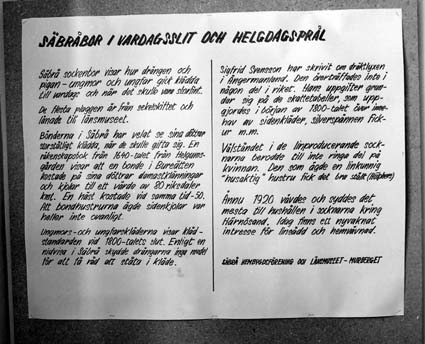 SÄBRÅBOR I VARDAGSSLIT OCH HELGDAGSPRÅL
Säbrå sockenbor visar hur drängen och
pigan - ungmor och ungfar gick klädda
till vardags och när det skulle vara storfint.
De flesta plaggen är från sekelskiftet och
lånade till länsmuseet.
Bönderna i Säbrå har velat se sina döttrar
storståtligt klädda, när de skulle gifta sig. En
räkenskapsbok från 1840-talet från Helgums-
gården visar att en bonde i Bureåsten
kostade på sina döttrar damastklänningar
och kjolar till ett värde av 80 riksdaler
kmt. En häst kostade vid samma tid -50.
Att bondhustrurna ägde sidenkjolar var
heller inte ovanligt.
Ungmors- och ungfarskläderna visar kläd-
standarden vid 1800-talets slut. Enligt en
nidvisa i Säbrå skydde drängarna inga medel
för att få råd att ståta i kläde.
Sigfrid Svensson har skrivit om dräktlyxen
i Ångermanland. Den överträffades inte i
någon del i riket. Hans uppgifter grun-
dar sig på de skattetabeller, som upp-
gjordes i början av 1800-talet över inne-
hav av sidenkläder, silverspännen fick-
ur m.m.
Välståndet i de linproducerande sock-
narna berodde till inte ringa del på
kvinnan. Den som ägde en linkunnig
"husaktig" hustru fick det bra ställt
Ännu 1920 vävdes och syddes det
mesta till hushållen i socknarna kring
Härnösand. Idag finns ett nyvaknat
intresse för linsådd och hemvävnad.
SÄBRÅ HEMBYGDSFÖRENING OCH LÄNSMUSEET - MURBERGET